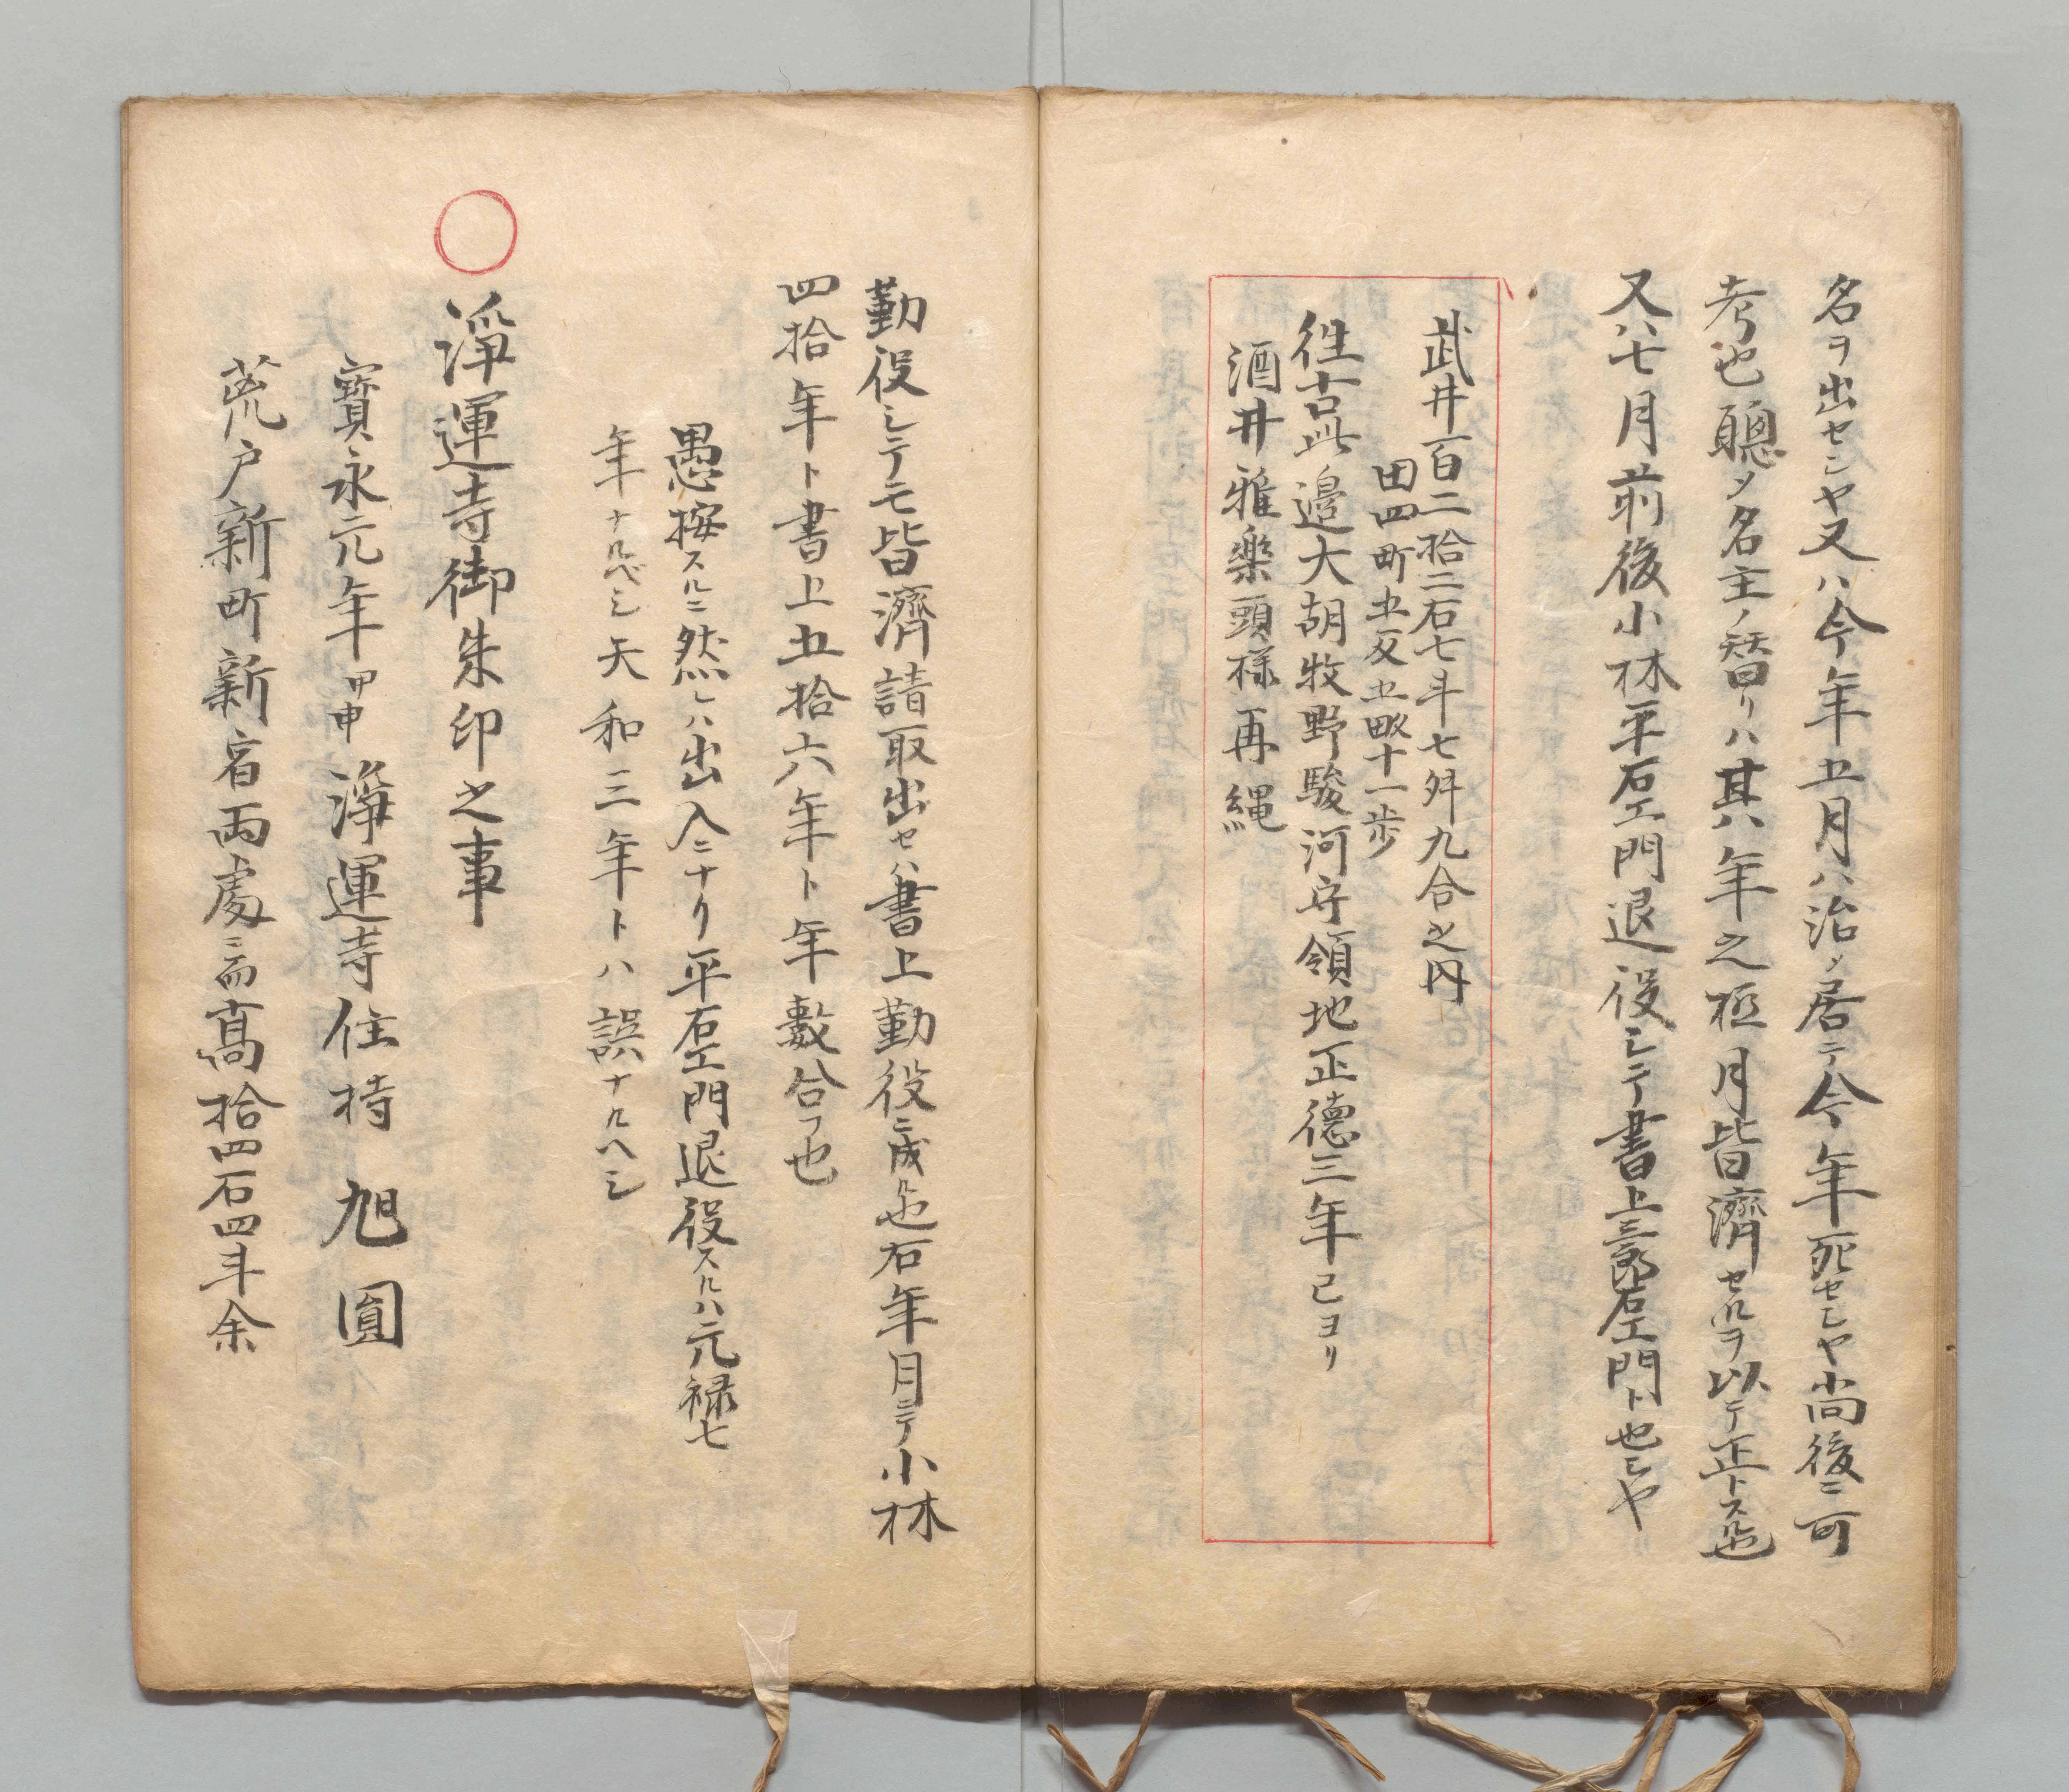 名ヲ出センヤ又ハ今年五月ハ治メ居テ今年死セシヤ尚後ニ可
考也聴メ名主ノ替リハ其八年之極月皆濟セルヲ以テ正トス也
又ハ七月前後小林平右エ門退役シテ書上三郎右エ門ト也シヤ
武井百二拾二石七斗七舛九合之内
田四町五反五畝十一歩
往古此邉大胡牧野駿河守領地正徳三年巳ヨリ
酒井雅楽頭様再縄
勤役シテモ皆濟請取出セハ書上勤役ニ成ル也右年月ニテ小林
四拾年ト書上五拾六年ト年數合フ也
愚按スルニ然レハ出入ニナリ平右エ門退役スルハ元禄七
年ナルベシ天和三年トハ誤ナルヘシ
〇
淨運寺御朱印之事
寳永元年甲申 淨運寺住持 旭圓
荒戸新町新宿両處ニ而高拾四石四斗余